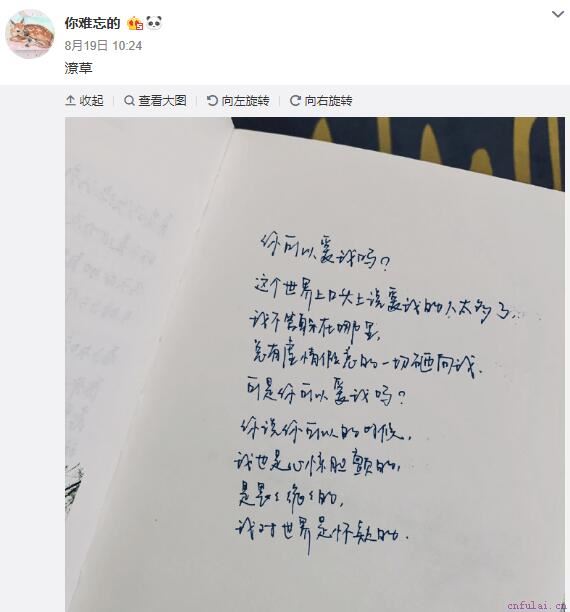 你难忘的
8月19日 10:24
潦草
收起 查看大图 向左旋转 向右旋转
你可以爱我吗?
这个世界上口头上说爱我的人太多了,
我不管躲在哪里,
总有虚情假意的一切砸向我.
可是你可以爱我吗?
你说你可以的时候,
我也是心惊胆颤的,
是畏々缩々的,
我对世界是怀疑的.
cnfulai.cn